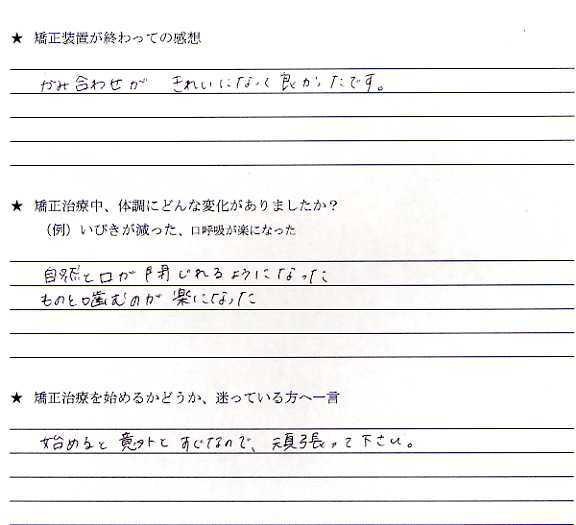 ★ 矯正装置が終わっての感想
かみ合わせが きれいになって良かったです。
★ 矯正治療中、体調にどんな変化がありましたか？
（例）いびきが減った、口呼吸が楽になった
自然と口が閉じれるようになった
ものを噛むのが楽になった
★ 矯正治療を始めるかどうか、迷っている方へ一言
始めると意外とすぐなので、頑張って下さい。